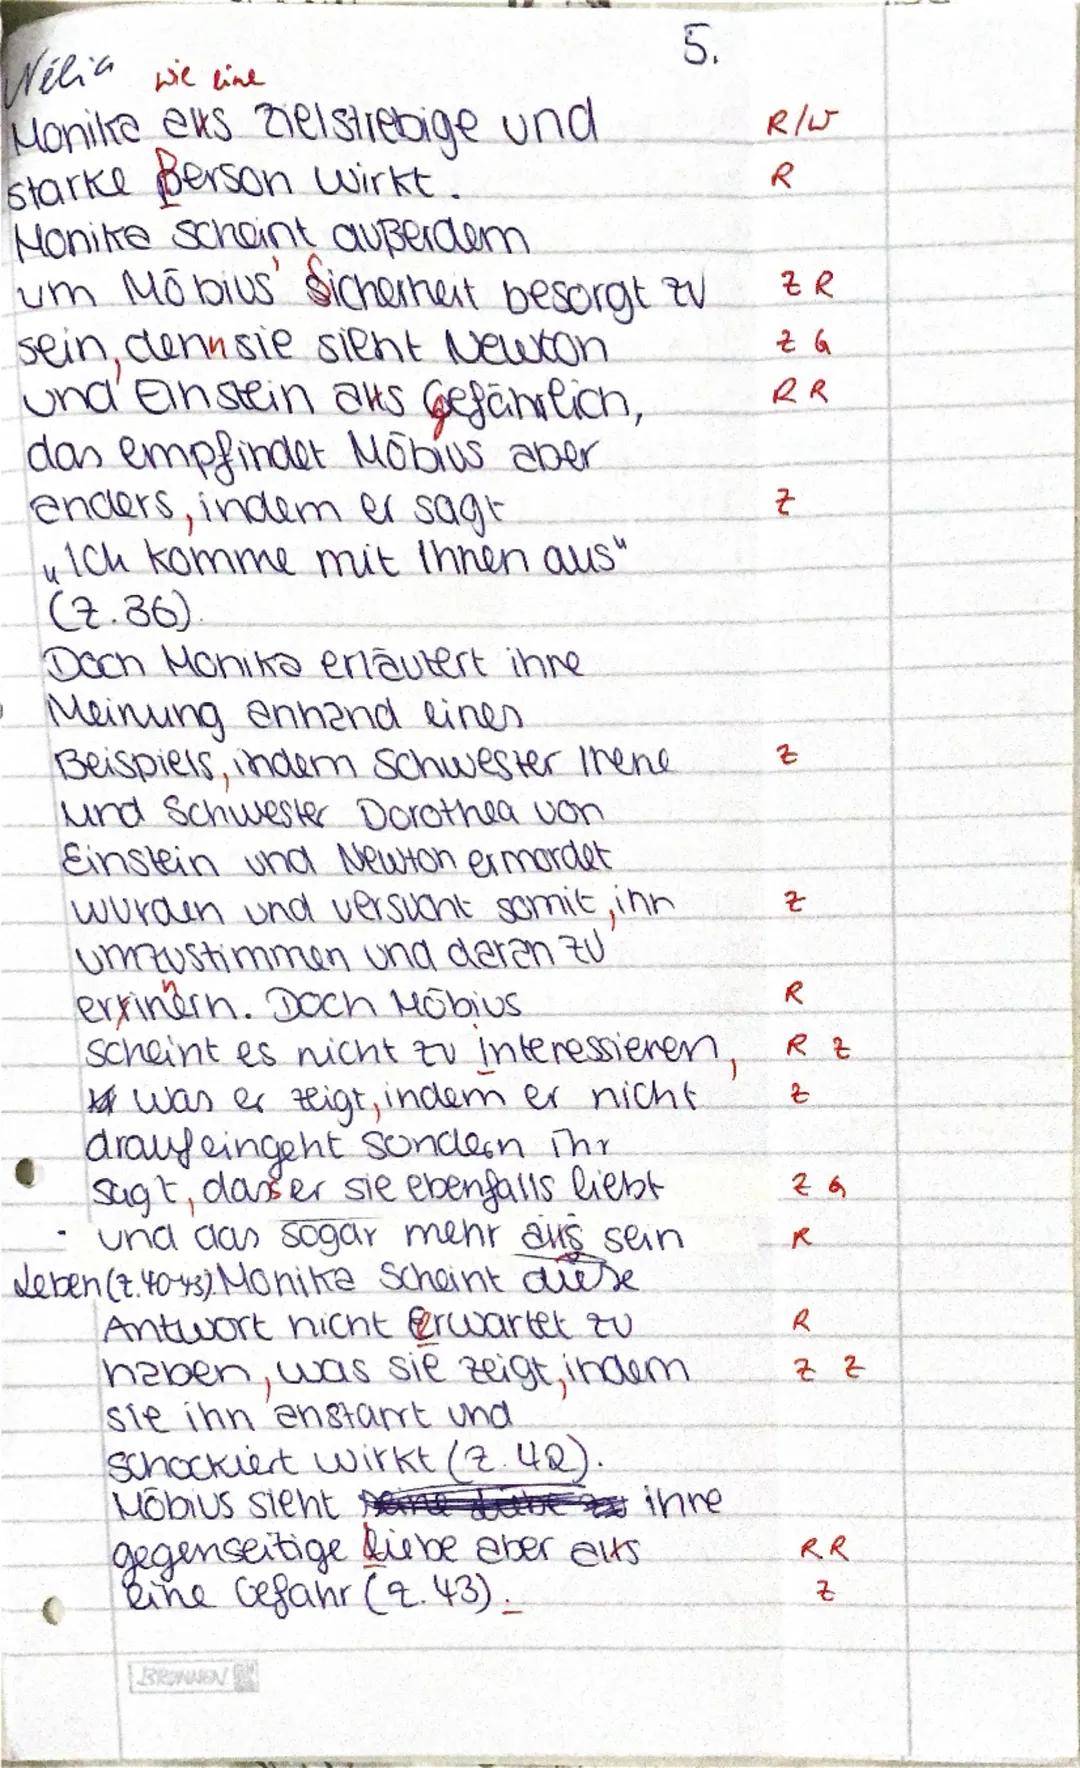 Nélia 5.
wie eine
Monika alls zielstrebige und R/W
starke Person wirkt. R
Monika scheint außerdem
um Möbius' Sicherheit besorgt zu Z R
sein, denn sie sieht Newton Z G
und Einstein alls gefährlich, R R
das empfindet Möbius aber
anders, indem er sagt Z
„Ich komme mit Ihnen aus“
(Z.36).
Doch Monika erläutert ihre
Meinung anhand eines
Beispiels, indem Schwester Irene Z
und Schwester Dorothea von
Einstein und Newton ermordet
wurden und versucht somit, ihn Z
umzustimmen und daran zu
errinern. Doch Möbius R
scheint es nicht zu interessieren, R Z
was er zeigt, indem er nicht Z
draufeingeht sondern ihr
sagt, dass er sie ebenfalls liebt Z G
und das sogar mehr alls sein R
Leben (Z.40-43). Monika scheint diese
Antwort nicht erwartet zu R
haben, was sie zeigt, indem Z Z
sie ihn anstarrt und
schockiert wirkt (Z.42).
Möbius sieht ihre
gegenseitige Liebe aber alls R R
eine Gefahr (Z.43). Z
BRUNNEN